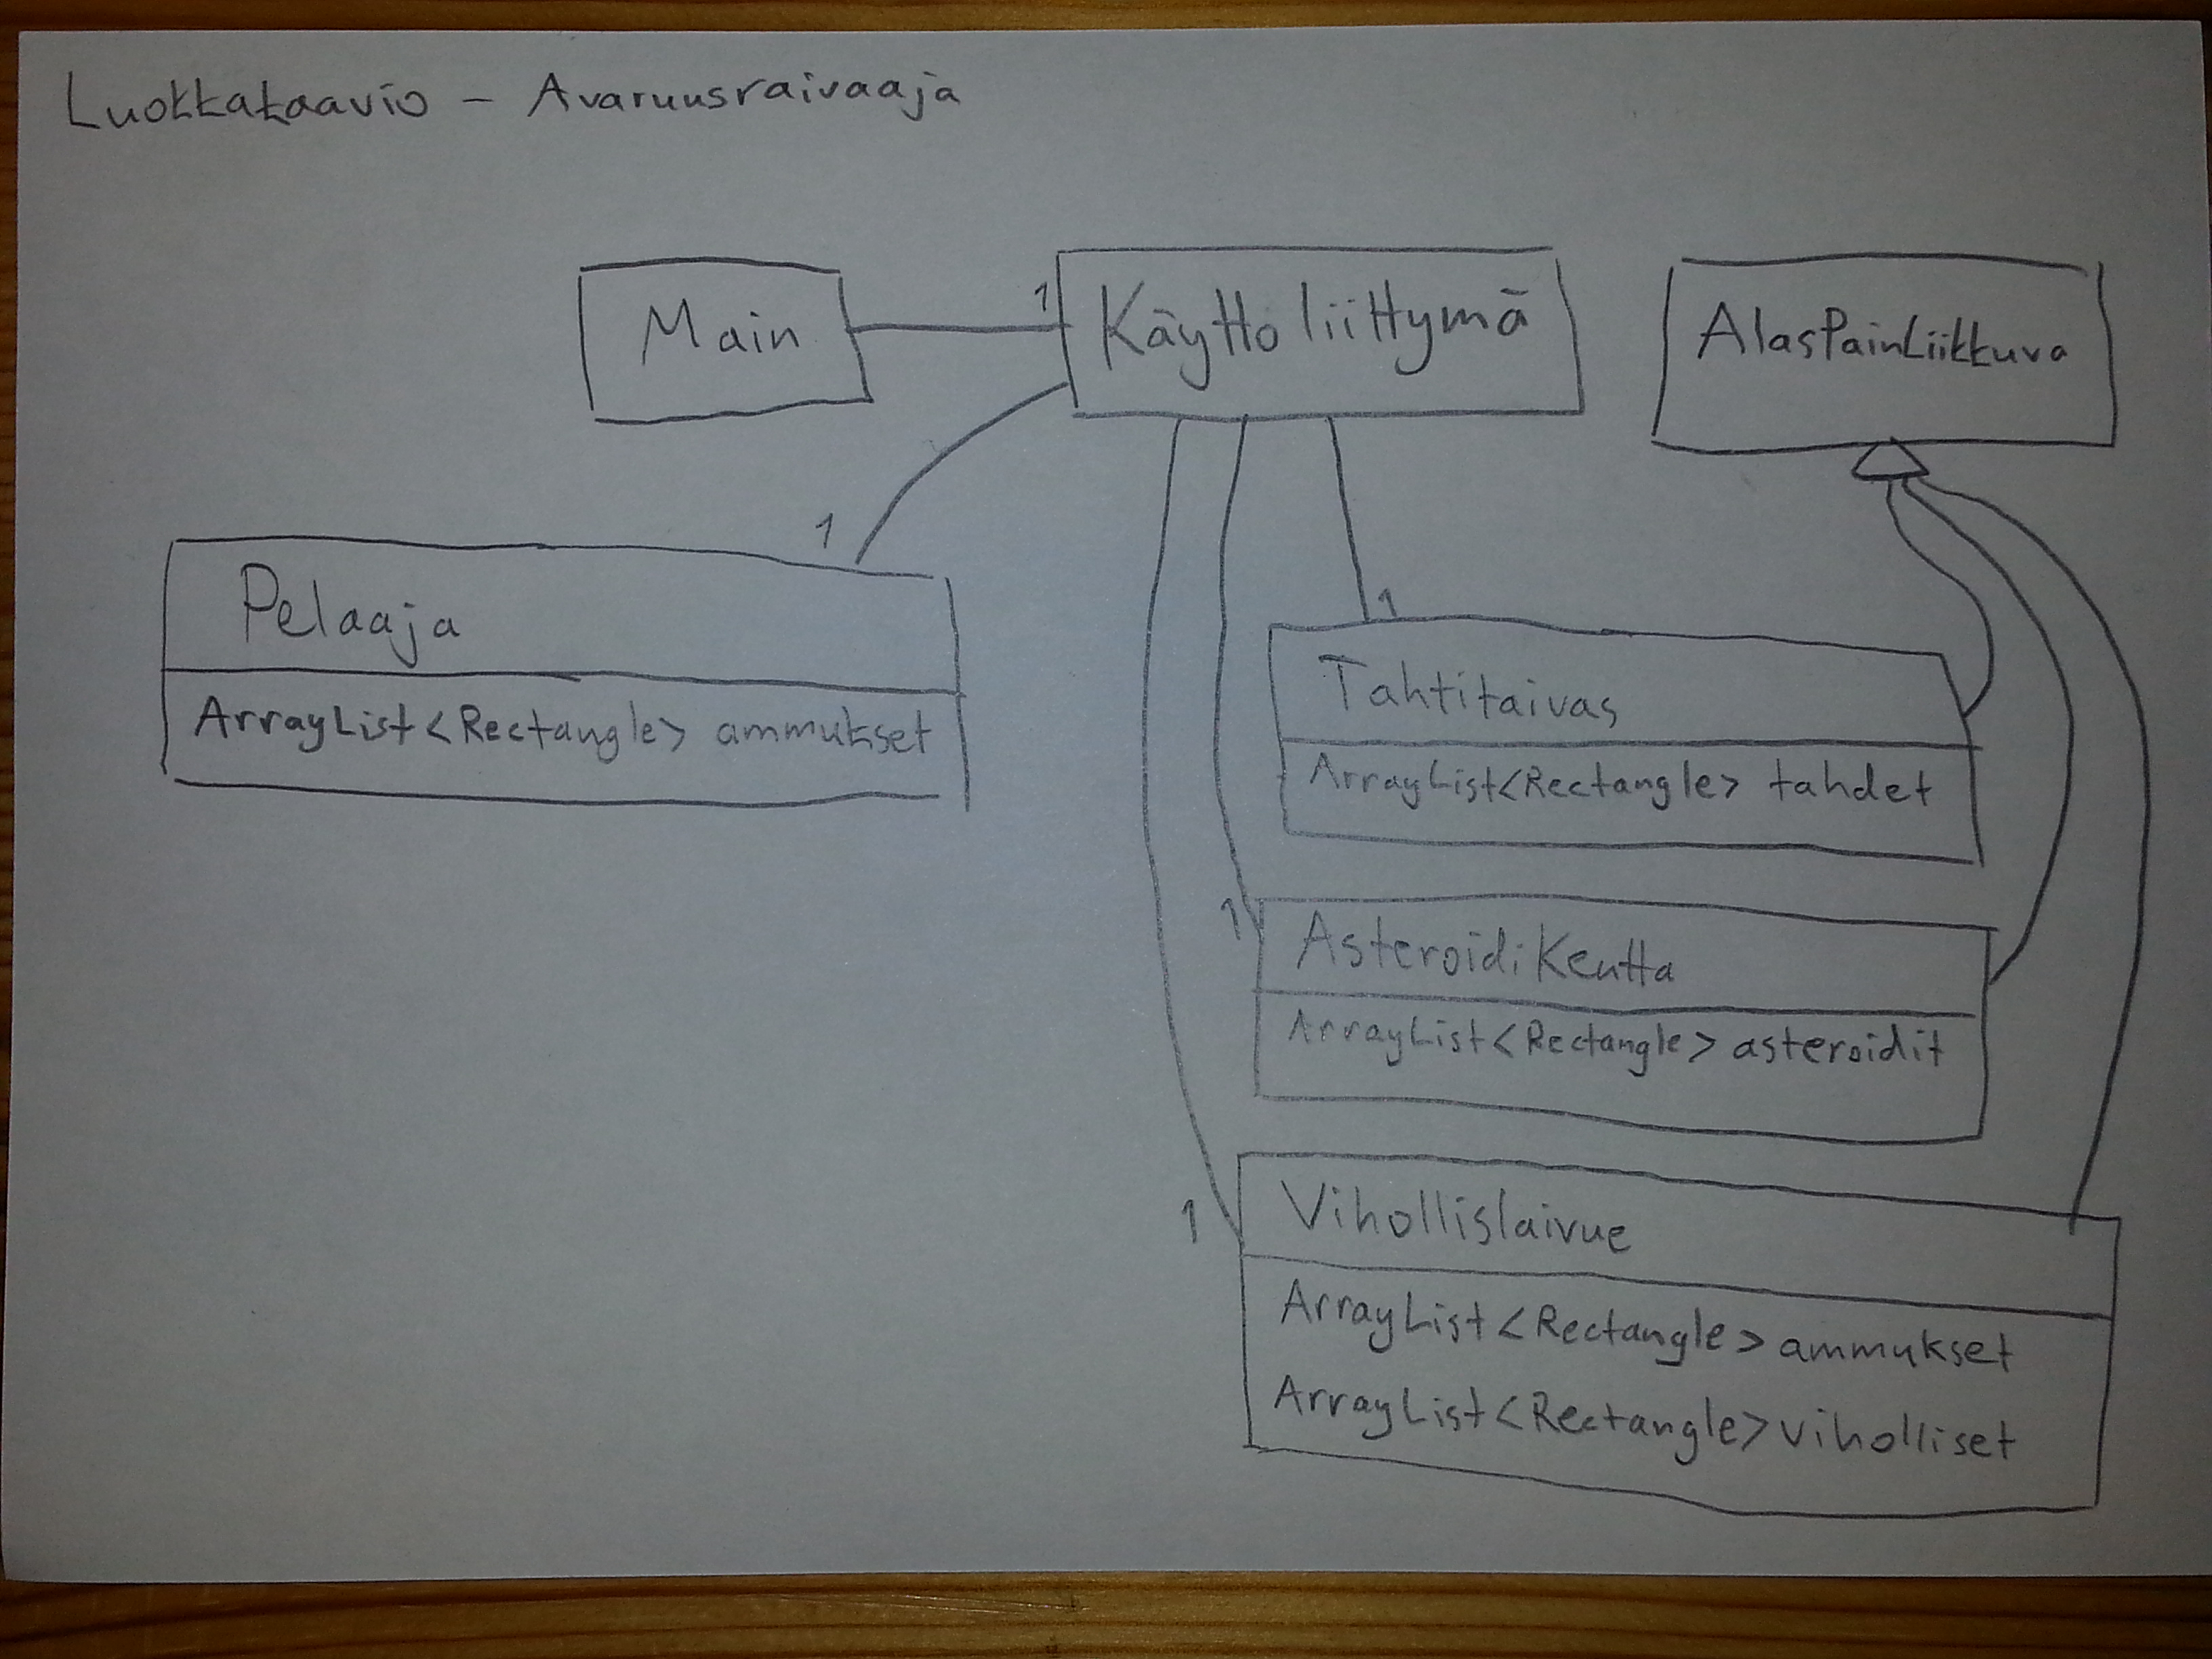 Luokkakaavio - Avaruusraivaaja
Main
1
Käyttoliittymä
AlasPainLiikkuva
1
Pelaaja
ArrayList<Rectangle> ammukset
1
Tahtitaivas
ArrayList<Rectangle> tahdet
1
AsteroidiKentta
ArrayList<Rectangle> asteroidit
1
Vihollislaivue
ArrayList<Rectangle> ammukset
ArrayList<Rectangle> viholliset